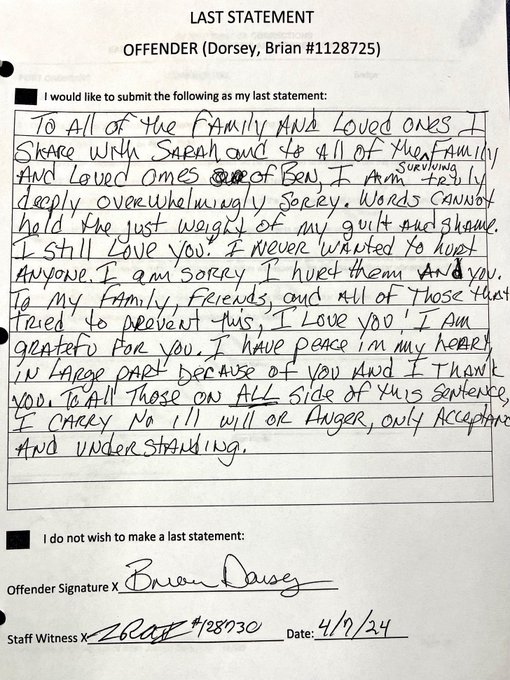 LAST STATEMENT
OFFENDER (Dorsey, Brian #1128725)
I would like to submit the following as my last statement:
To All of the Family And Loved ones I
Share with Sarah and to All of the surviving Family
And Loved ones of Ben, I Am truly
deeply overwhelmingly sorry. Words cannot
hold the just weight of my guilt and shame.
I still Love you. I never wanted to hurt
Anyone. I am sorry I hurt them And you.
To my Family, Friends, and All of Those that
tried to prevent this, I Love you! I Am
gratefu for you. I have peace in my heart,
in Large part because of you And I Thank
you. To All Those on ALL side of this sentence,
I carry No ill will or Anger, only Acceptanc
And understanding.
I do not wish to make a last statement:
Offender Signature X Brian Dorsey
Staff Witness X #128730 Date: 4/7/24